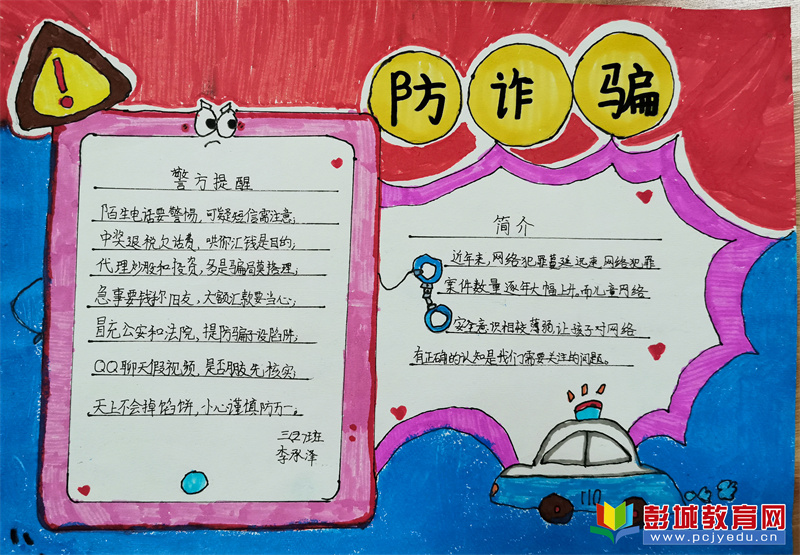 防诈骗
警方提醒
陌生电话要警惕,可疑短信需注意;
中奖退税欠话费,哄你汇钱是目的;
代理炒股和投资,多是骗局莫搭理;
急事要找你旧友,大额汇款要当心;
冒充公安和法院,提防骗子设陷阱;
QQ聊天假视频,是否朋友先核实;
天上不会掉馅饼,小心谨慎防万一。
三(27)班
李承泽
简介
近年来,网络犯罪蔓延迅速,网络犯罪
案件数量逐年大幅上升,而儿童网络
安全意识相较薄弱,让孩子对网络
有正确的认知是我们需要关注的问题。
110
彭城教育网
www.pcjyedu.cn